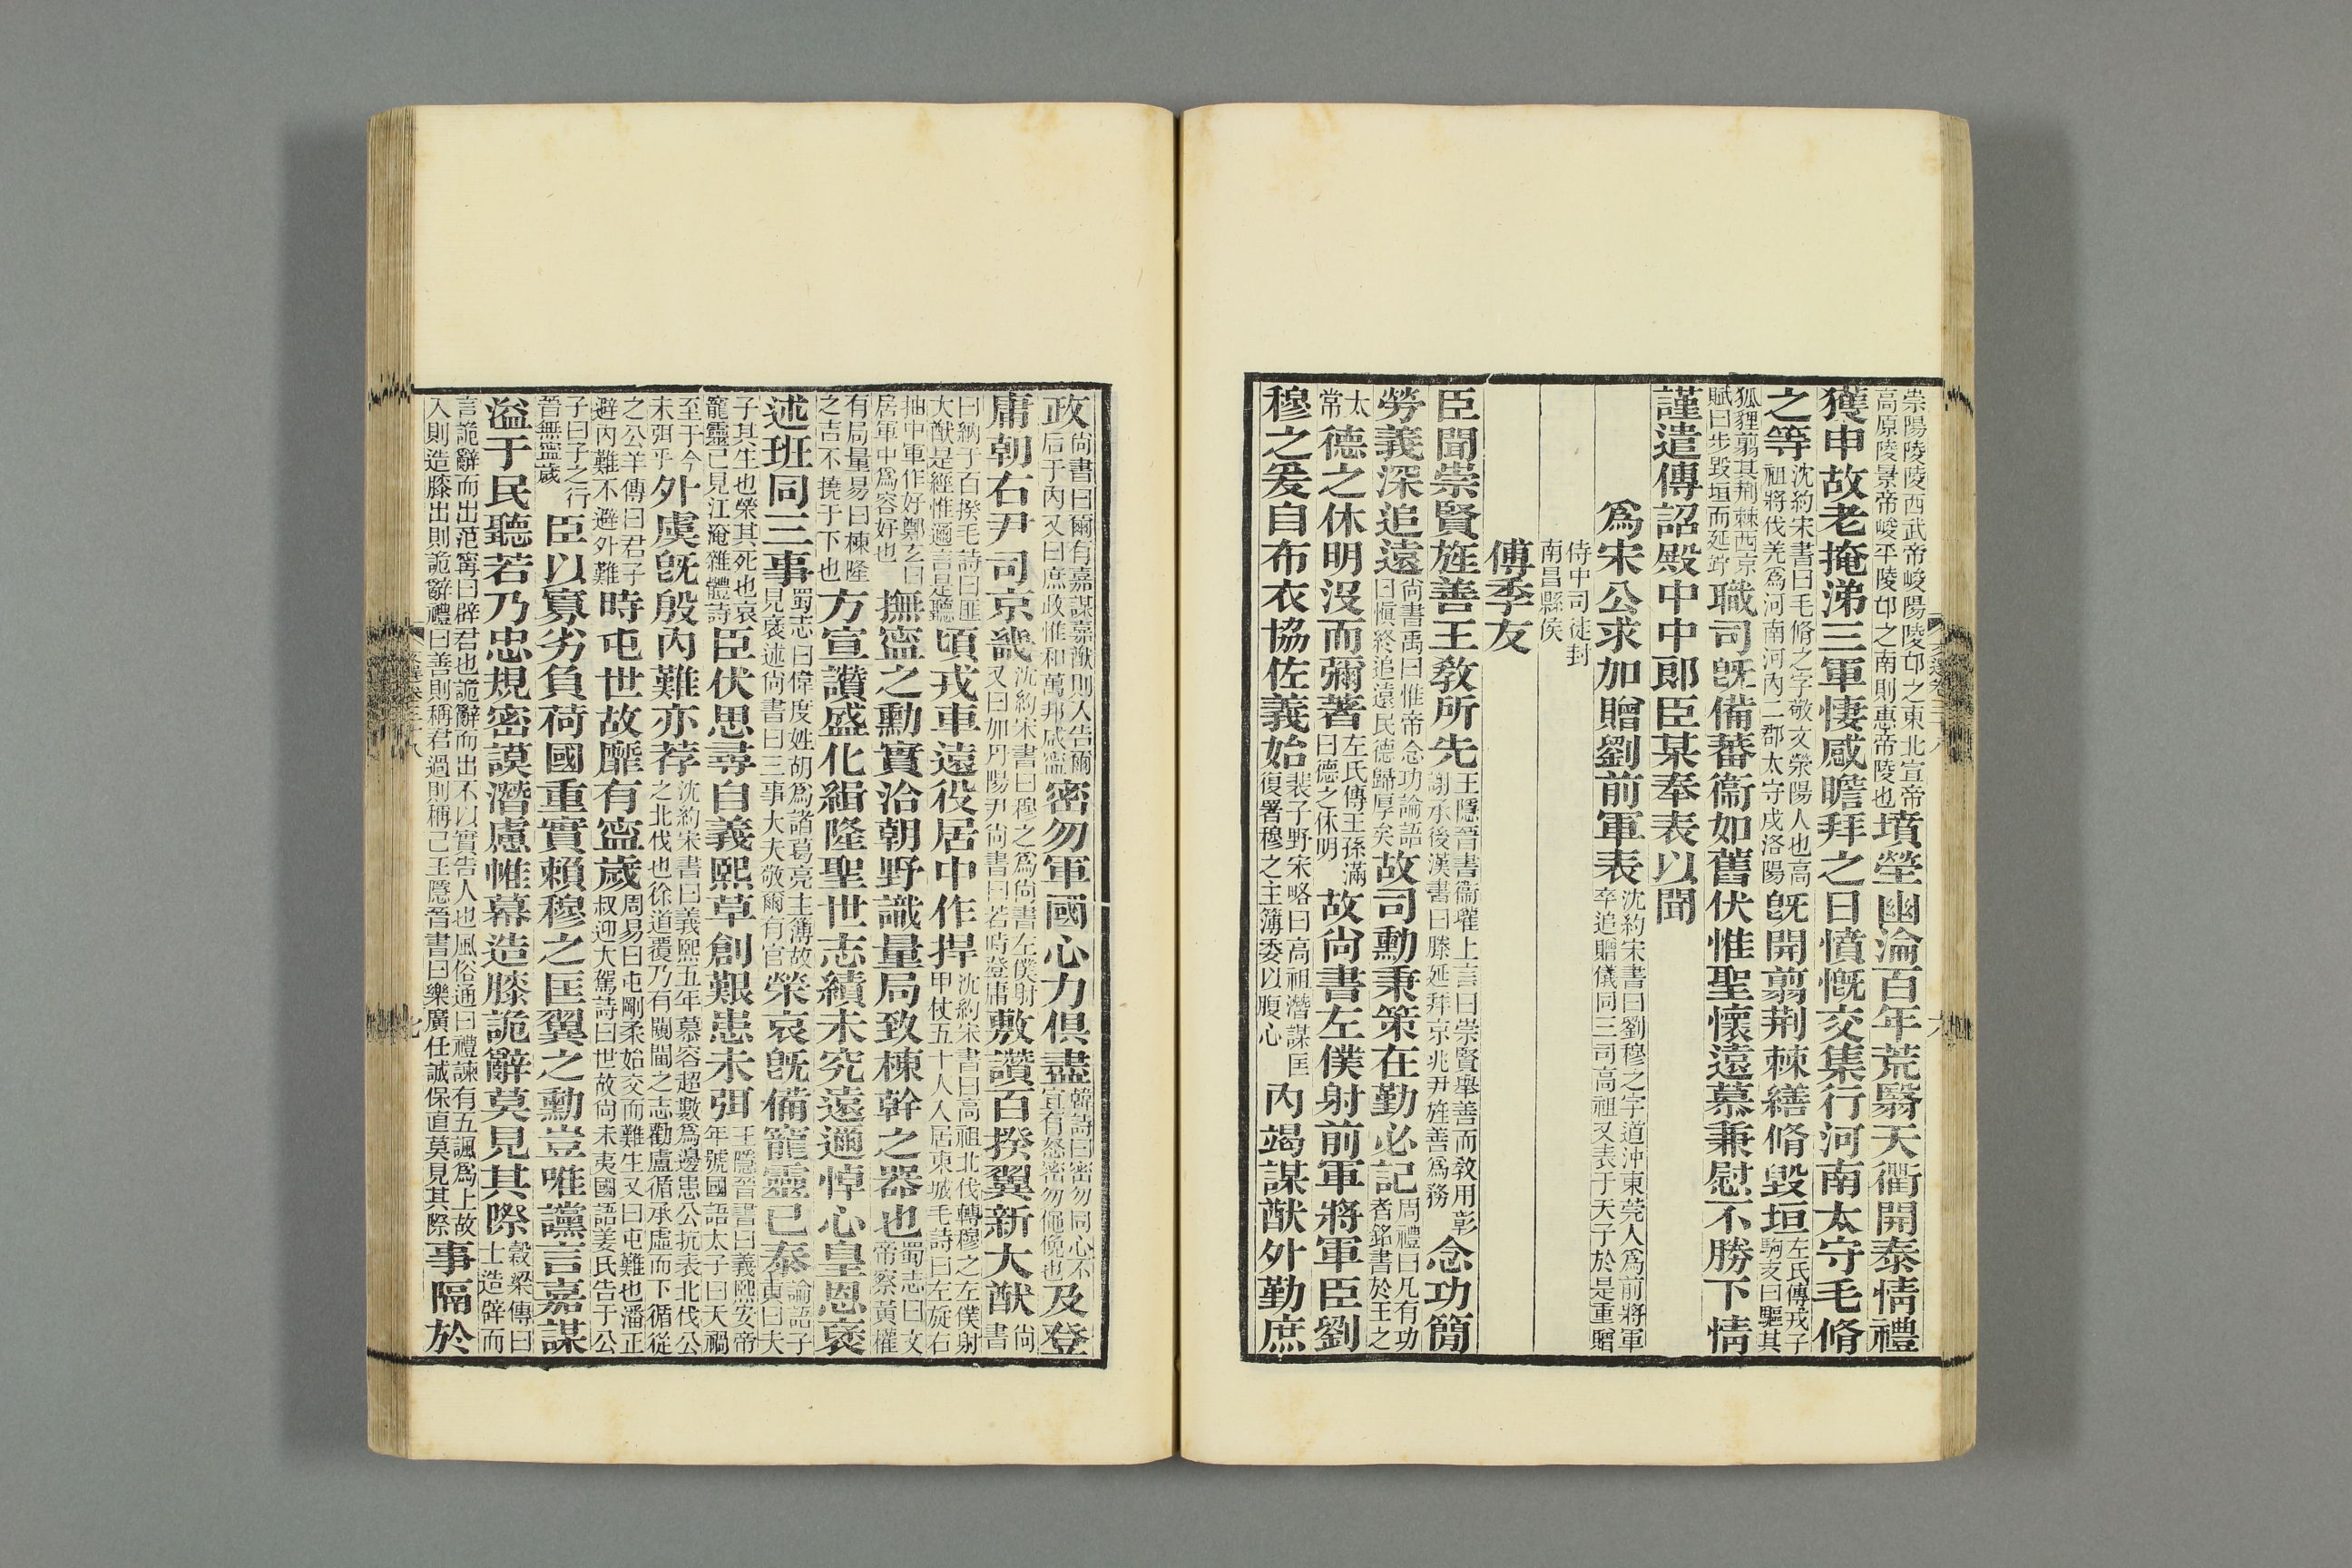 崇陽陵陵西武帝峻陽陵邙之東北宣帝高原陵景帝峻平陵邙之南則惠帝陵也墳塋幽淪百年荒翳天衢開泰情禮
獲申故老掩涕三軍悽感瞻拜之日憤慨交集行河南太守毛脩
之等沈約宋書曰毛脩之字敬文滎陽人也高祖將伐羌爲河南河內二郡太守戍洛陽旣開翦荆棘繕脩毀垣左氏傳戎子駒支曰驅其
狐貍翦其荆棘西京賦曰步毀垣而延竚職司旣備蕃衞如舊伏惟聖懷遠慕兼慰不勝下情
謹遣傳詔殿中中郎臣某奉表以聞
爲宋公求加贈劉前軍表沈約宋書曰劉穆之字道沖東莞人爲前將軍卒追贈儀同三司高祖又表于天子於是重贈
侍中司徒封南昌縣侯
傅季友
臣聞崇賢旌善王敎所先王隱晉書衞瓘上言曰崇賢舉善而敎用彰謝承後漢書曰滕延拜京兆尹旌善爲務念功簡
勞義深追遠尚書禹曰惟帝念功論語曰愼終追遠民德歸厚矣故司勳秉策在勤必記周禮曰凡有功者銘書於王之
太常德之休明沒而彌著左氏傳王孫滿曰德之休明故尚書左僕射前軍將軍臣劉
穆之爰自布衣協佐義始裴子野宋略曰高祖潛謀匡復署穆之主簿委以腹心內竭謀猷外勤庶
政尚書曰爾有嘉謀嘉猷則入告爾后于內又曰庶政惟和萬邦咸寧密勿軍國心力俱盡韓詩曰密勿同心不宜有怒密勿僶俛也及登
庸朝右尹司京畿沈約宋書曰穆之爲尚書左僕射又曰加丹陽尹尚書曰若時登庸敷讚百揆翼新大猷尚書
曰納于百揆毛詩曰匪大猷是經惟邇言是聽頃戎車遠役居中作捍沈約宋書曰高祖北伐轉穆之左僕射甲杖五十人入居東城毛詩曰左旋右
抽中軍作好鄭玄曰居軍中爲容好也撫寧之勳實洽朝野識量局致棟幹之器也蜀志曰文帝察黃權
有局量易曰棟隆之吉不撓于下也方宣讚盛化緝隆聖世志績未究遠邇悼心皇恩褒
述班同三事蜀志曰偉度姓胡爲諸葛亮主簿故見褒述尚書曰三事大夫敬爾有官榮哀旣備寵靈已泰論語子貢曰夫
子其生也榮其死也哀寵靈已見江淹雜體詩臣伏思尋自義熙草創艱患未弭王隱晉書曰義熙安帝年號國語太子曰天禍
至于今未弭乎外虞旣殷內難亦荐沈約宋書曰義熙五年慕容超數爲邊患公抗表北伐公之北伐也徐道覆乃有闚閫之志勸盧循承虛而下循從
之公羊傳曰君子避內難不避外難時屯世故靡有寧歲周易曰屯剛柔始交而難生又曰屯難也潘正叔迎大駕詩曰世故尚未夷國語姜氏告于公
子曰子之行晉無寧歲臣以寡劣負荷國重實賴穆之匡翼之勳豈唯讜言嘉謀
溢于民聽若乃忠規密謨潛慮帷幕造膝詭辭莫見其際穀梁傳曰士造辟而
言詭辭而出范甯曰辟君也詭辭而出不以實告人也風俗通曰禮諫有五諷爲上故入則造膝出則詭辭禮曰善則稱君過則稱己王隱晉書曰樂廣任誠保直莫見其際事隔於